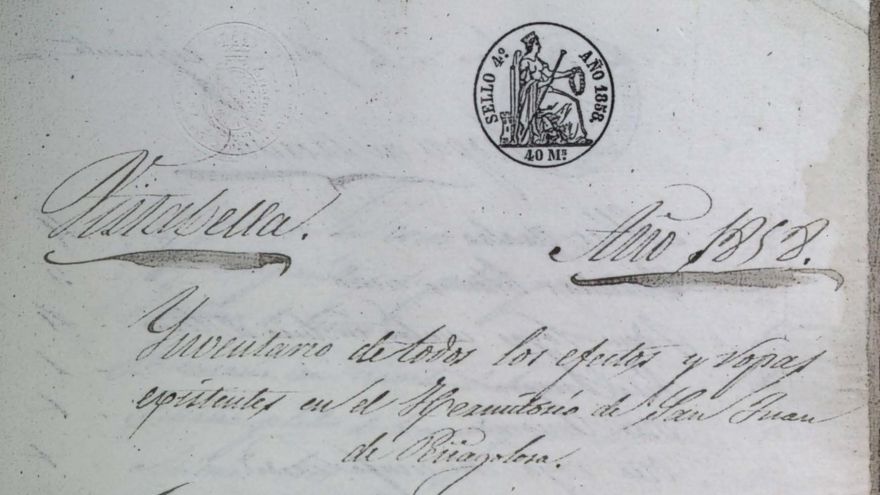 SELLO 4º AÑO 1858.
40 Ms
Vistabella. Año 1858.
Ynventario de todos los efectos y ropas
existentes en el Hermitorio de San Juan
de Peñagolosa.